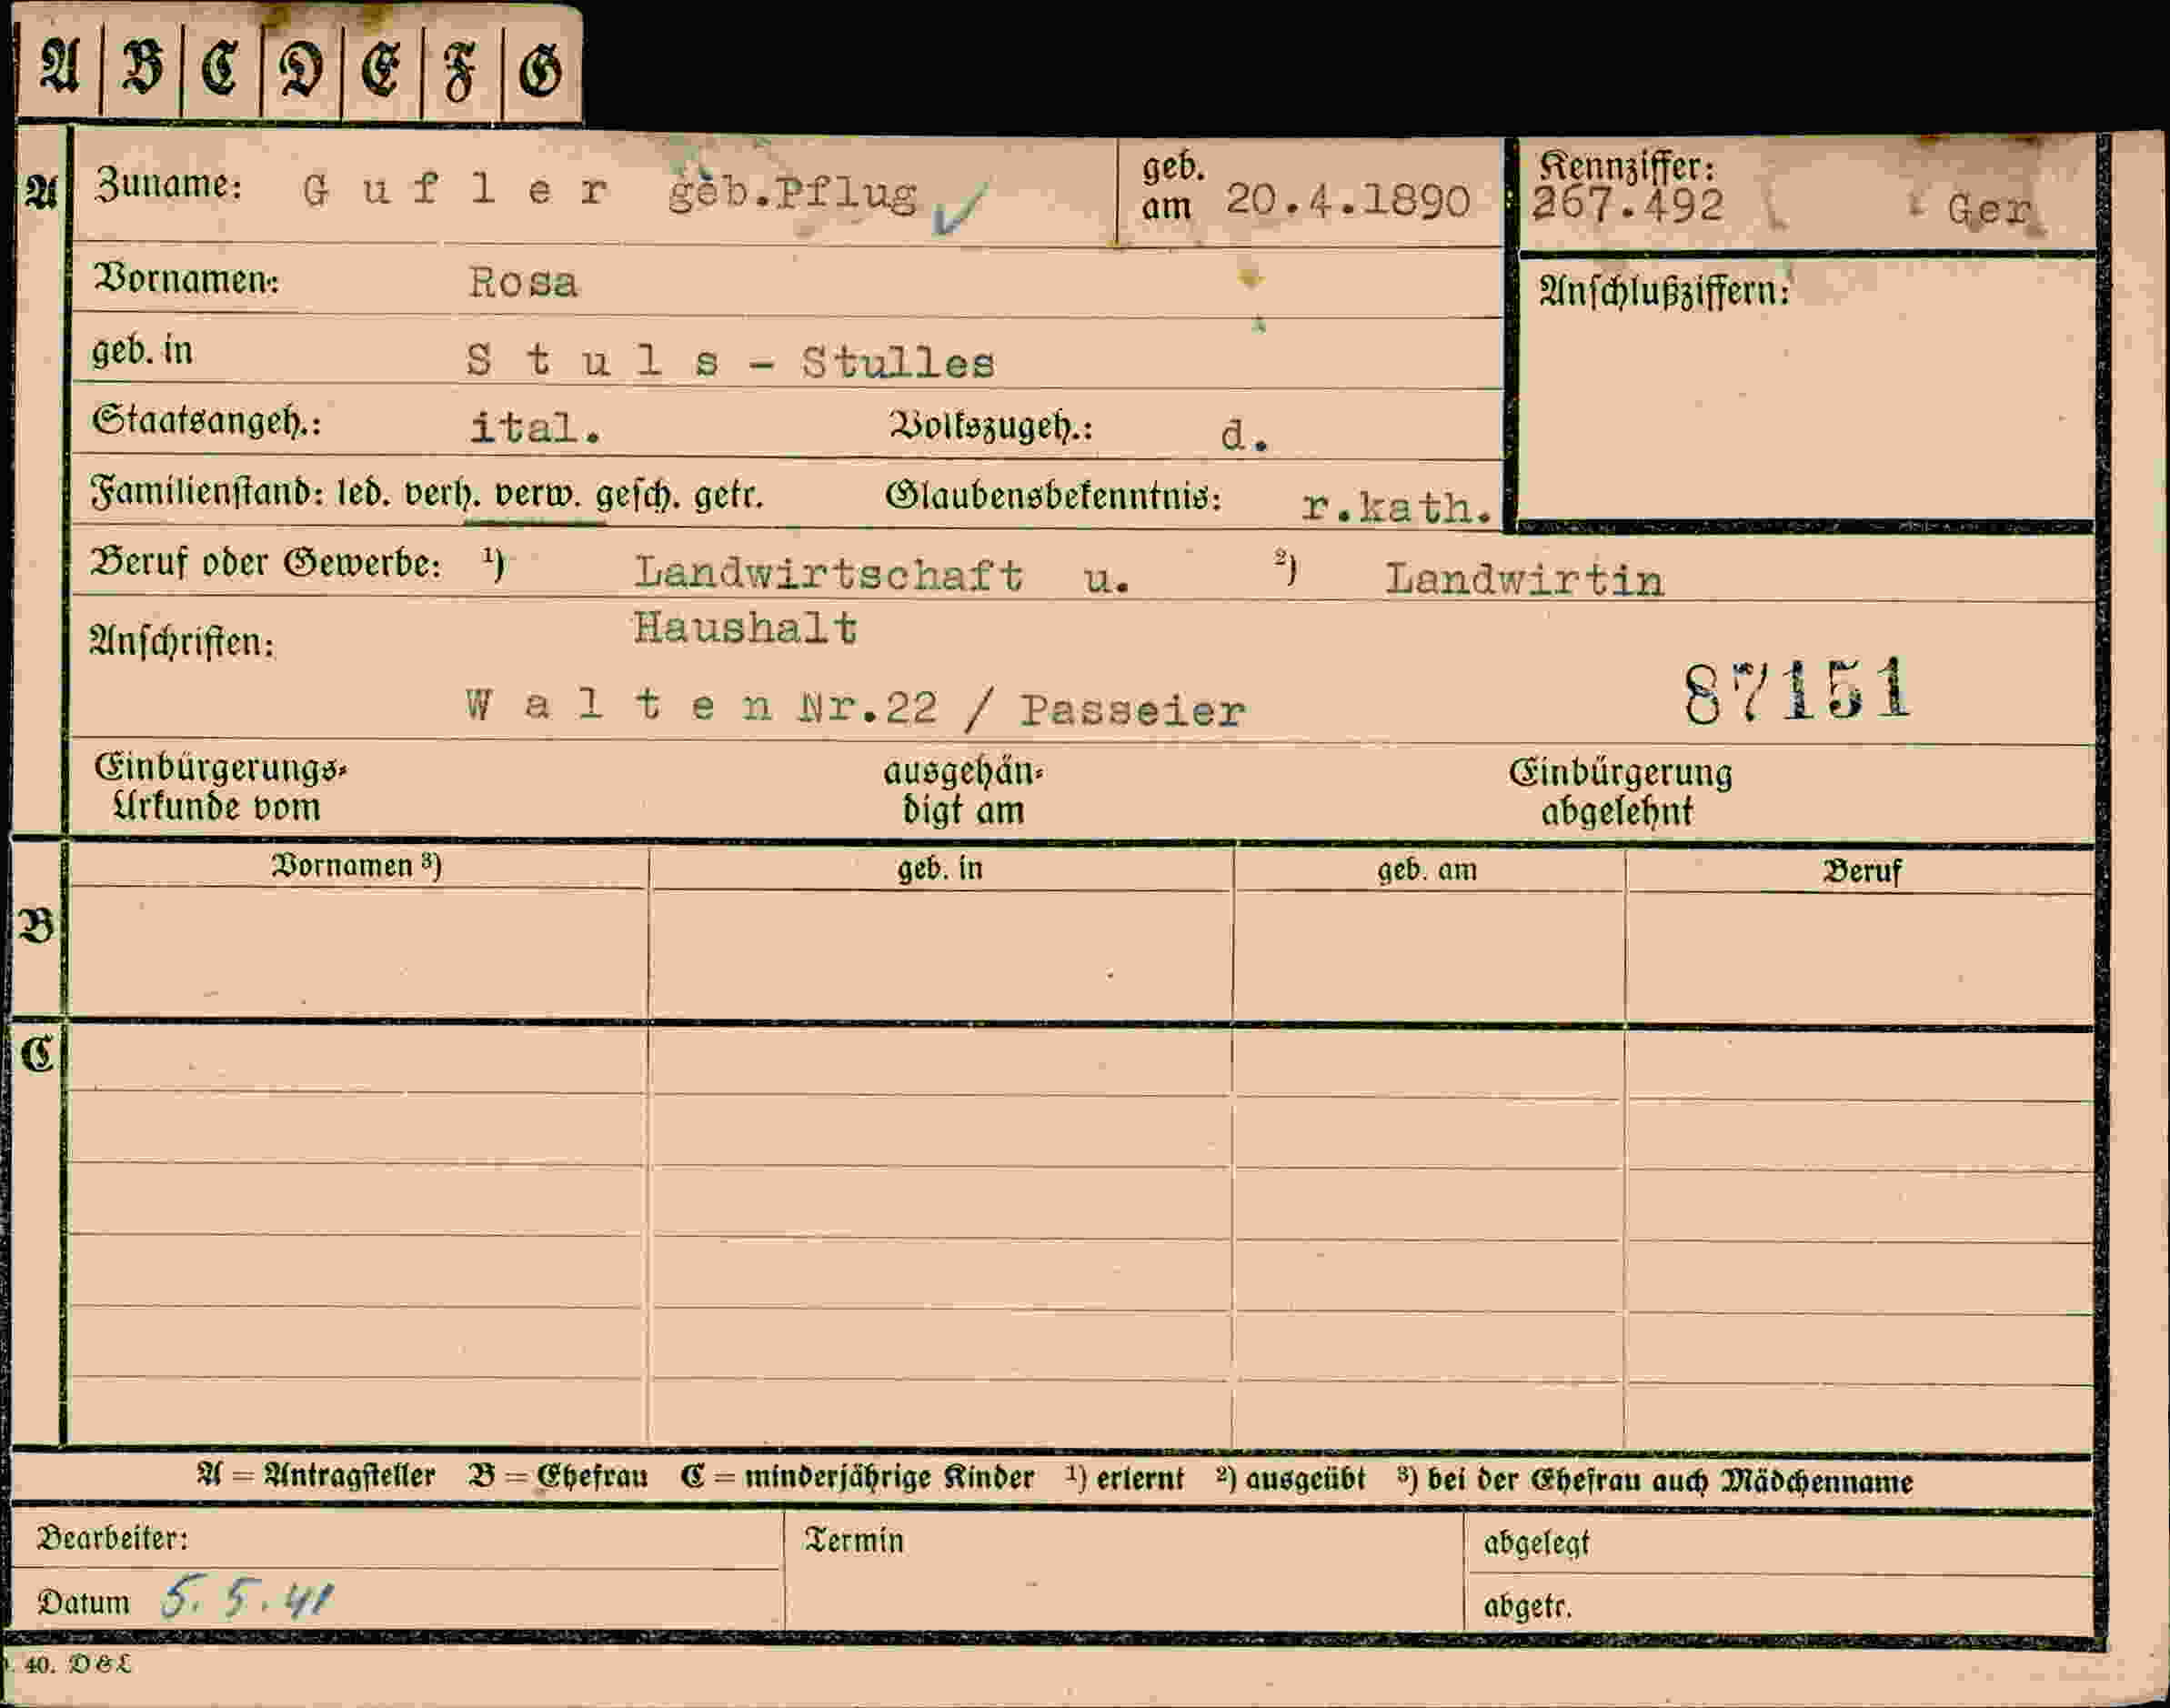 A B C D E F G
A Zuname: G u f l e r geb.Pflug geb. am 20.4.1890
Kennziffer: 267.492 Ger
Vornamen: Rosa
Anschlußziffern:
geb. in S t u l s - Stulles
Staatsangeh.: ital. Volkszugeh.: d.
Familienstand: led. verh. verw. gesch. getr. Glaubensbekenntnis: r.kath.
Beruf oder Gewerbe: ¹) Landwirtschaft u. ²) Landwirtin
Haushalt
Anschriften:
W a l t e n Nr.22 / Passeier 87151
Einbürgerungs- ausgehän- Einbürgerung
Urkunde vom digt am abgelehnt
Vornamen ³) geb. in geb. am Beruf
B
C
A = Antragsteller B = Ehefrau C = minderjährige Kinder ¹) erlernt ²) ausgeübt ³) bei der Ehefrau auch Mädchenname
Bearbeiter: Termin abgelegt
Datum 5. 5. 41 abgetr.
40. D & L